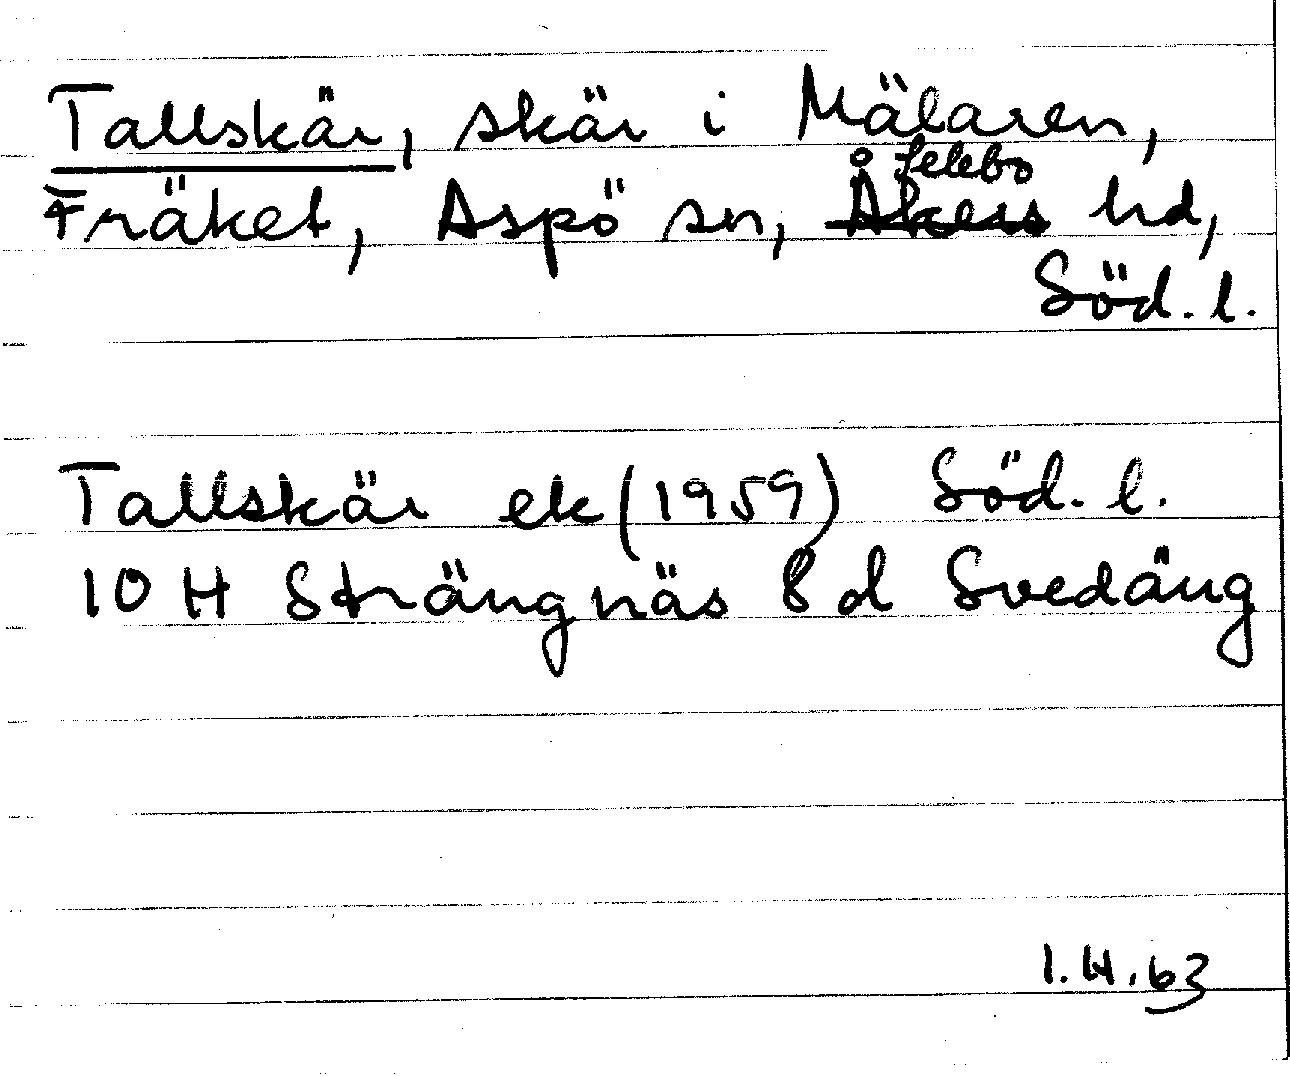 Tallskär, skär i Mälaren,
Fräket, Aspö sn, Åkers Selebo hd,
Söd. l.
Tallskär ek (1959) Söd. l.
10 H Strängnäs 8 d Svedäng
I.H.63